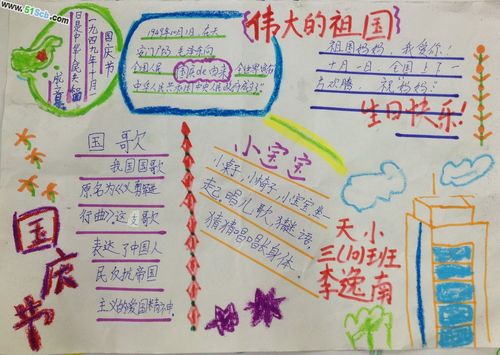 www.51Scb.com
国庆节
一九四九年十月一
日是中华人民共和国
成立
1949年10月1日,在天
安门广场 毛泽东向
全国人民
国庆de由来
中华人民共和国中央人民政府成立
伟大的祖国
祖国妈妈,我爱你!
十月一日,全国上下一
方欢腾,祝妈妈:
生日快乐!
国歌
我国国歌
原名为《义勇军进
行曲》这支歌
表达了中国人
民反抗帝国
主义的爱国精神。
小宝宝
小桌子,小椅子,小宝宝 一
起,唱儿歌,猜谜语,
猜猜唱唱长身体。
国庆节
天小
三(10)班
李逸南